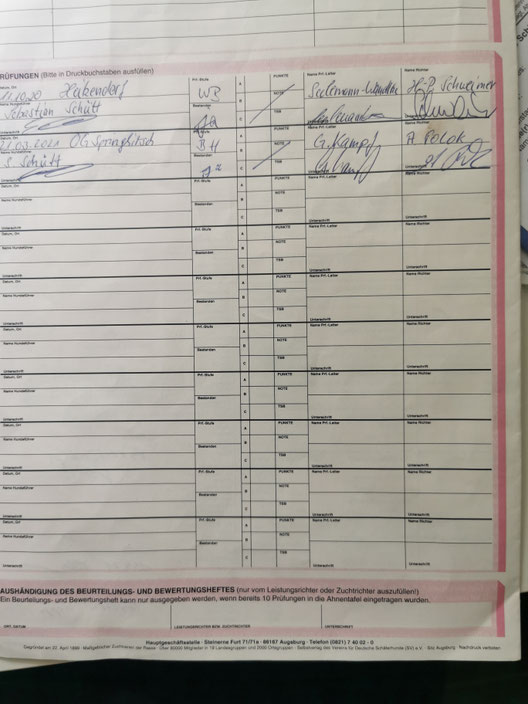 PRÜFUNGEN (Bitte in Druckbuchstaben ausfüllen)
Datum, Ort Prf.-Stufe A PUNKTE Name Prf.-Leiter Name Richter
11.10.20 WB
Name Hundeführer B NOTE
Sebastian Schütt Bestanden
Unterschrift C TSB Unterschrift Unterschrift
Datum, Ort Prf.-Stufe A PUNKTE Name Prf.-Leiter Name Richter
21.03.2021 OG BH G. Kampf A. Polok
Name Hundeführer B NOTE
S. Schütt Bestanden
Unterschrift C TSB Unterschrift Unterschrift
Datum, Ort Prf.-Stufe A PUNKTE Name Prf.-Leiter Name Richter
Name Hundeführer Bestanden B NOTE
Unterschrift C TSB Unterschrift Unterschrift
Datum, Ort Prf.-Stufe A PUNKTE Name Prf.-Leiter Name Richter
Name Hundeführer Bestanden B NOTE
Unterschrift C TSB Unterschrift Unterschrift
Datum, Ort Prf.-Stufe A PUNKTE Name Prf.-Leiter Name Richter
Name Hundeführer Bestanden B NOTE
Unterschrift C TSB Unterschrift Unterschrift
Datum, Ort Prf.-Stufe A PUNKTE Name Prf.-Leiter Name Richter
Name Hundeführer Bestanden B NOTE
Unterschrift C TSB Unterschrift Unterschrift
Datum, Ort Prf.-Stufe A PUNKTE Name Prf.-Leiter Name Richter
Name Hundeführer Bestanden B NOTE
Unterschrift C TSB Unterschrift Unterschrift
Datum, Ort Prf.-Stufe A PUNKTE Name Prf.-Leiter Name Richter
Name Hundeführer Bestanden B NOTE
Unterschrift C TSB Unterschrift Unterschrift
Datum, Ort Prf.-Stufe A PUNKTE Name Prf.-Leiter Name Richter
Name Hundeführer Bestanden B NOTE
Unterschrift C TSB Unterschrift Unterschrift
Datum, Ort Prf.-Stufe A PUNKTE Name Prf.-Leiter Name Richter
Name Hundeführer Bestanden B NOTE
Unterschrift C TSB Unterschrift Unterschrift
AUSHÄNDIGUNG DES BEURTEILUNGS- UND BEWERTUNGSHEFTES (nur vom Leistungsrichter oder Zuchtrichter auszufüllen!)
Ein Beurteilungs- und Bewertungsheft kann nur ausgegeben werden, wenn bereits 10 Prüfungen in die Ahnentafel eingetragen wurden.
ORT, DATUM LEISTUNGSRICHTER BZW. ZUCHTRICHTER UNTERSCHRIFT
Hauptgeschäftsstelle · Steinerne Furt 71/71a · 86167 Augsburg · Telefon (0821) 7 40 02 - 0